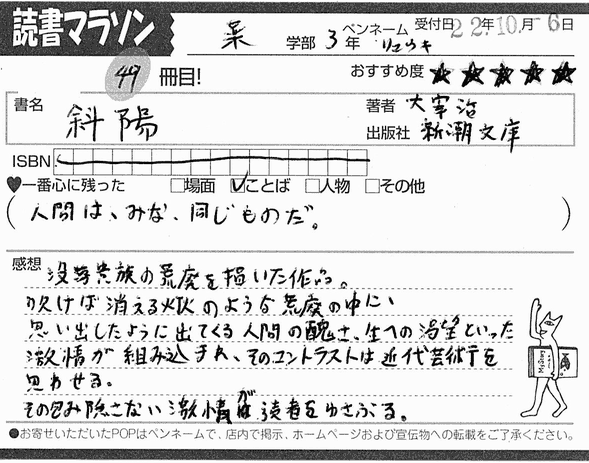 読書マラソン
薬 学部 3年 ペンネーム リュウキ 受付日 22年10月-6日
49 冊目! おすすめ度 ★★★★★
書名 斜陽 著者 太宰治
出版社 新潮文庫
ISBN
♥一番心に残った □場面 ☑ことば □人物 □その他
(人間は、みな、同じものだ。)
感想 没落貴族の荒廃を描いた作品。
吹けば消える火のような荒廃の中に、
思い出したように出てくる人間の醜さ、生への渇望といった
激情が組み込まれ、そのコントラストは近代芸術を
思わせる。
その包み隠さない激情が読者をゆさぶる。
●お寄せいただいたPOPはペンネームで、店内で掲示、ホームページおよび宣伝物への転載をご了承ください。